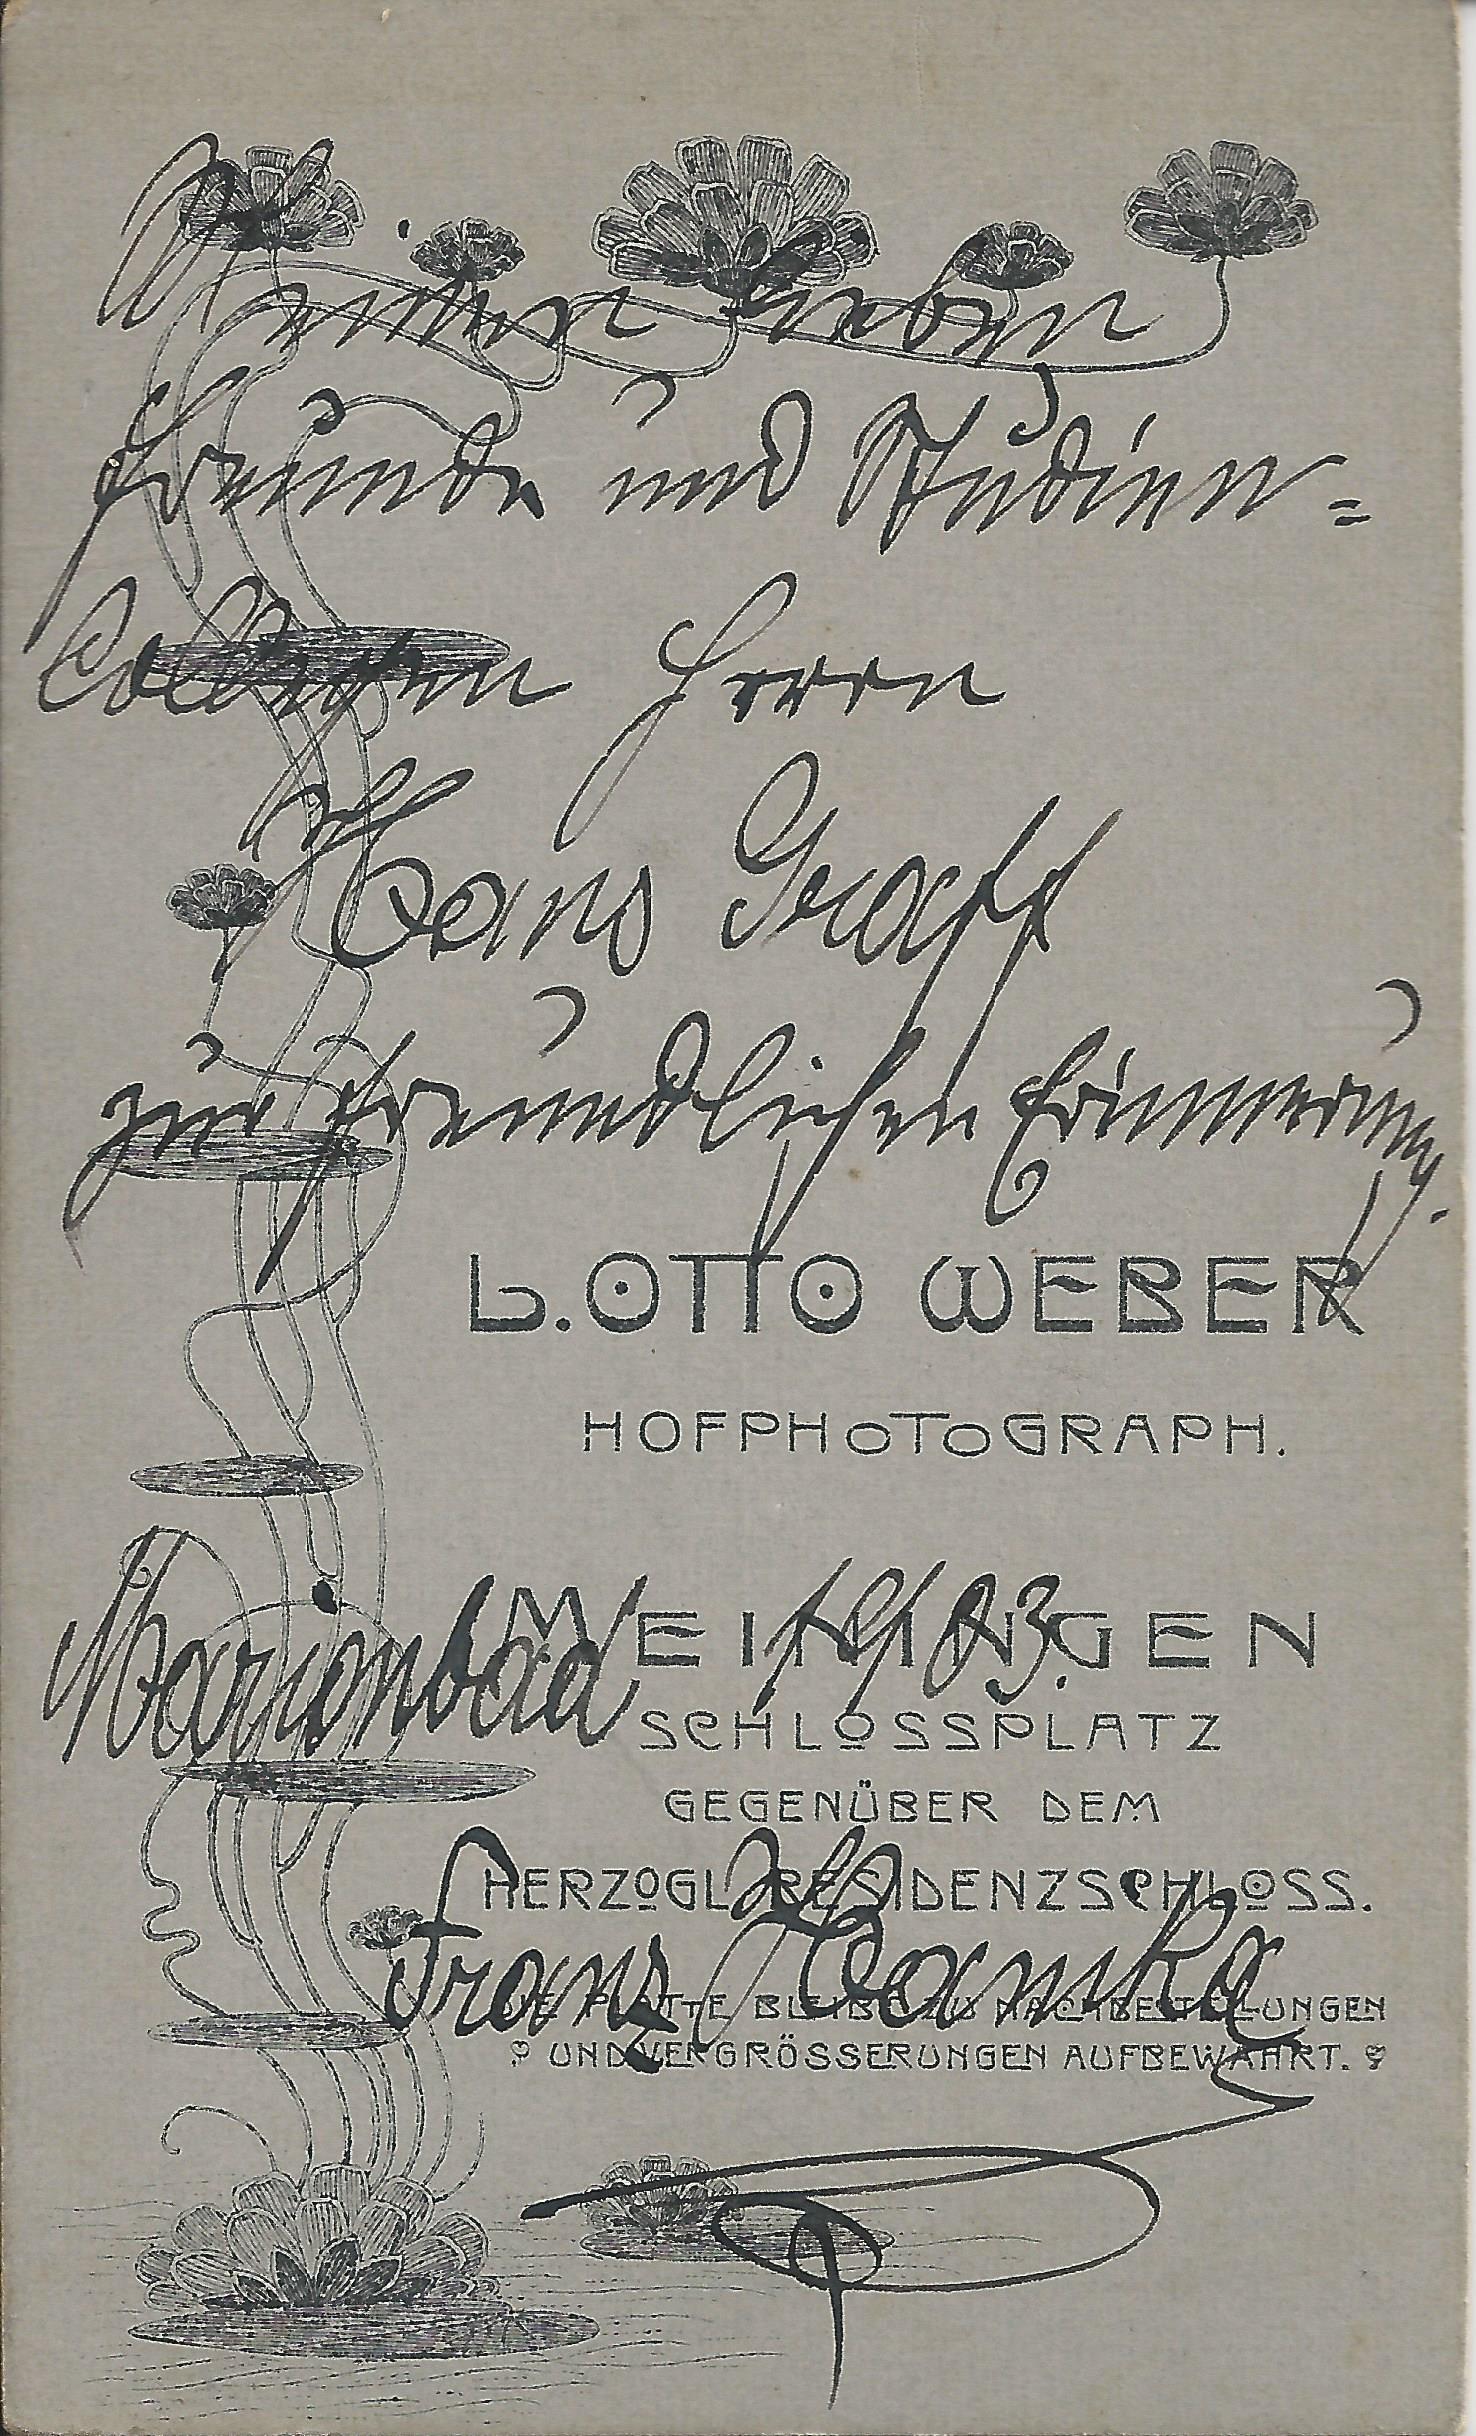 Meinen lieben
Freunde und Studien=
Collegen Herrn
Hans Graff
zur freundlichen Erinnerung.
L. OTTO WEBER
HOFPHOTOGRAPH.
MEININGEN
Marienbad
SCHLOSSPLATZ
GEGENÜBER DEM
HERZOGL. RESIDENZSCHLOSS.
Franz
DIE PLATTE BLEIBT ZU NACHBESTELLUNGEN
UND VERGRÖSSERUNGEN AUFBEWAHRT.